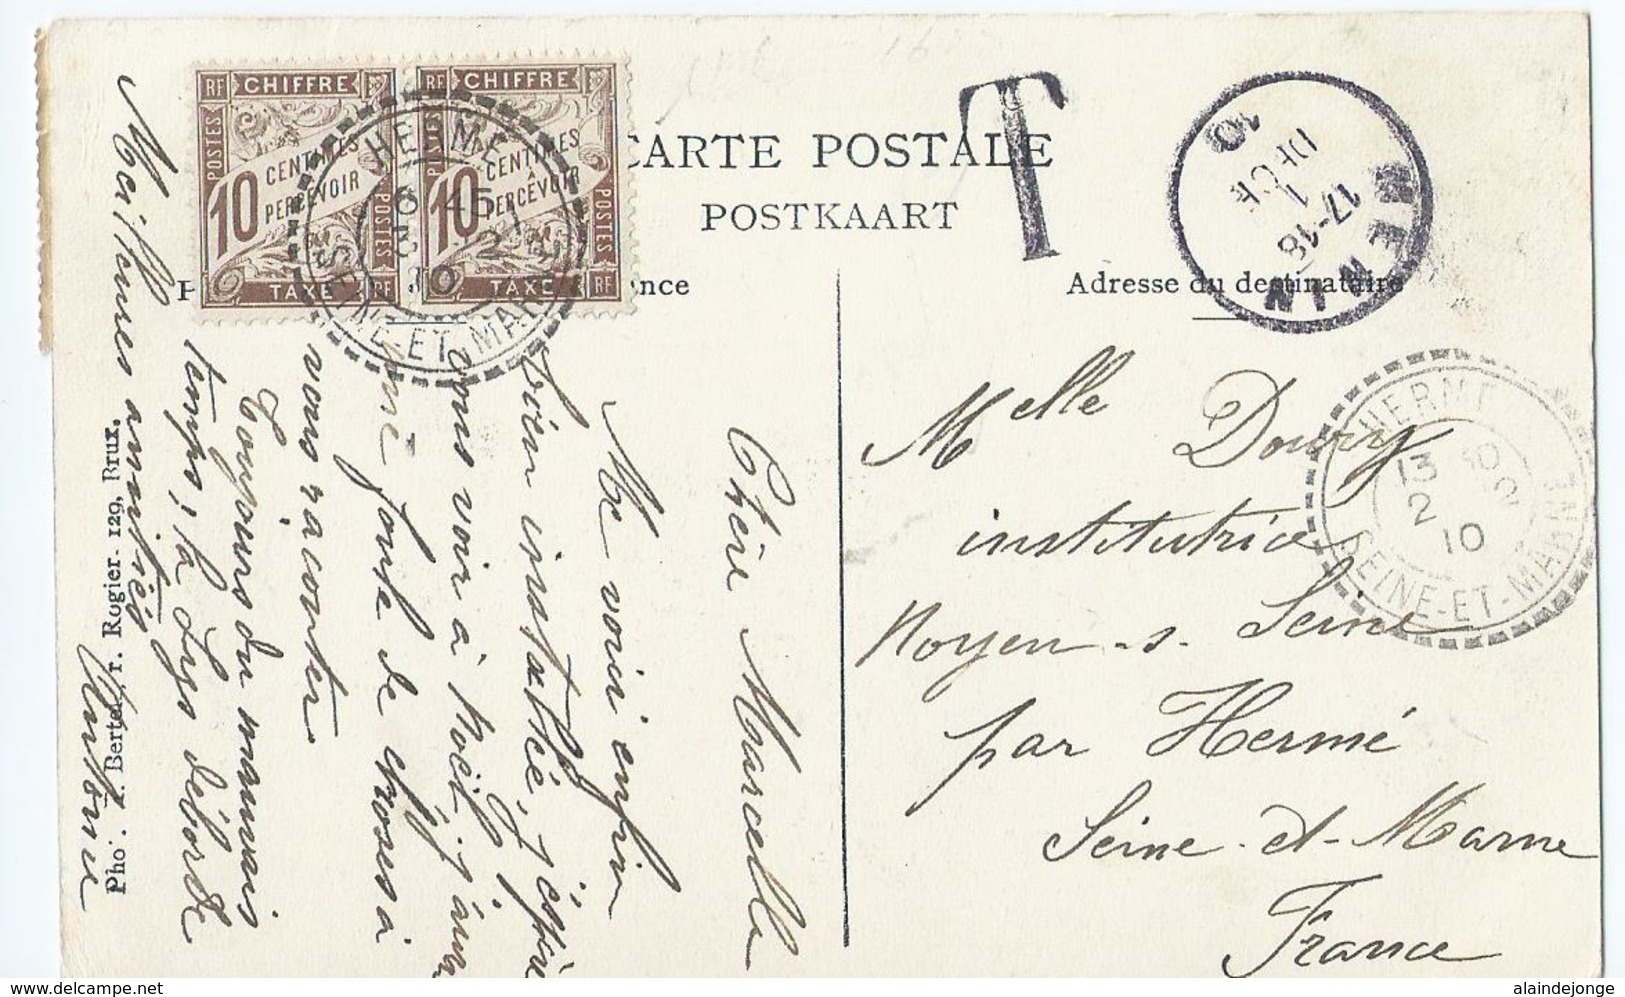 CARTE POSTALE
POSTKAART
nce
Adresse du destinataire
RF CHIFFRE
POSTES
10 CENTIMES
À
PERCEVOIR
POSTES
TAXE RF
RF CHIFFRE
10 CENTIMES
À
PERCEVOIR
POSTES
TAXE RF
HERMÉ
6 45
3 2
10
SEINE-ET-MARNE
T
MENIN
17-18
1
DEC
10
HERMÉ
13 30
2
10
SEINE-ET-MARNE
Melle Doury
institutrice
Noyen s. Seine
par Hermé
Seine et Marne
France
Chère Marcelle
Me voici enfin
bien installée, j'espère
vous voir à Noël, j'aurai
une foule de choses à
vous raconter
Toujours du mauvais
temps, la Lys déborde
Meilleures amitiés
Antoine
Pho. A. Bertels, r. Rogier 129, Brux.
alaindejonge